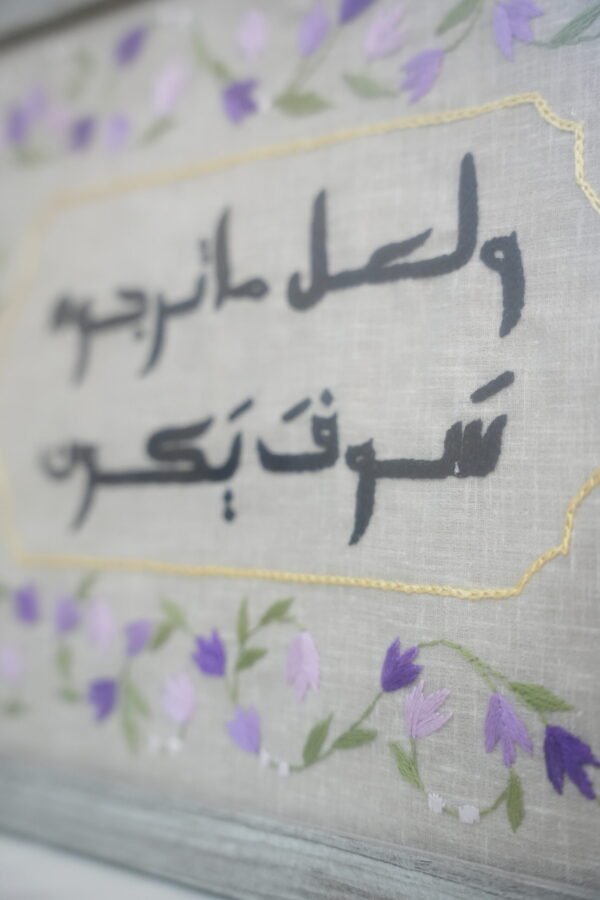 ولعل ما ترجوه
سَوفَ يَكون